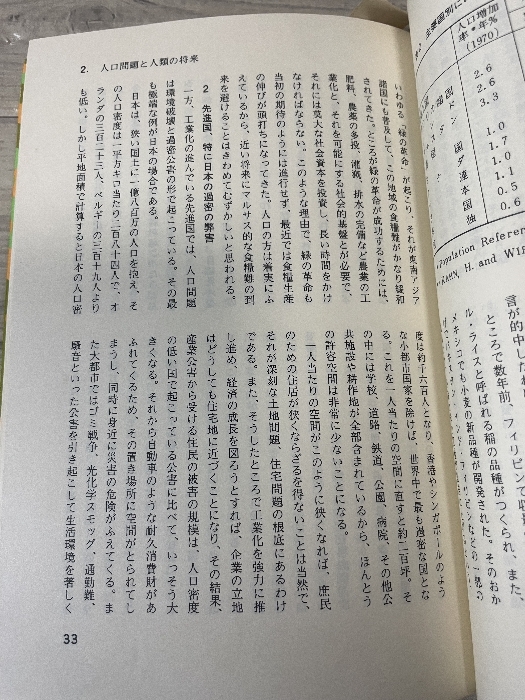 表2 主要国別に
人口増加
率・年%
(1970)
2.6
2.6
3.3
1.0
1.7
1.0
1.1
0.5
0.6
Population Refere
言が的中したわ
ところで数年前、フィリピン
ル・ライスと呼ばれる稲の品種がつくられ、また、
メキシコでも小麦の新品種が開発された。そのおか
2. 人口問題と人類の将来
いわゆる「緑の革命」が起こり、それが東南アジア
諸国にも普及して、この地域の食糧難がかなり緩和
されてきた。ところが緑の革命が成功するためには、
肥料、農薬の多投、灌漑、排水の完備など農業の工
業化と、それを可能にする社会的基盤とが必要で、
それには莫大な社会資本を投資し、長い時間をかけ
なければならない。このような理由で、緑の革命も
当初の期待のようには進行せず、最近では食糧生産
の伸びが頭打ちになってきた。人口の方は着実にふ
えているから、近い将来にマルサス的な食糧難の到
来を避けることはきわめてむずかしいと思われる。
2 先進国、特に日本の過密の弊害
一方、工業化の進んでいる先進国では、人口問題
は環境破壊と過密公害の形で起こっている。その最
も極端な例が日本の場合である。
日本は、狭い国土に一億八百万の人口を抱え、そ
の人口密度は一平方キロ当たり二百八十四人で、オ
ランダの三百二十三人、ベルギーの三百十九人より
も低い。しかし平地面積で計算すると日本の人口密
度は約千六百人となり、香港やシンガポールのよう
な小都市国家を除けば、世界中で最も過密な国とな
る。これを一人当たりの空間に直すと約二百坪。そ
の中には学校、道路、鉄道、公園、病院、その他公
共施設や耕作地が全部含まれているから、ほんとう
の許容空間は非常に少ないことになる。
一人当たりの空間がこのように狭くなれば、庶民
のための住居が狭くならざるを得ないことは当然で、
それが深刻な土地問題、住宅問題の根底にあるわけ
である。また、そうしたところで工業化を強力に推
し進め、経済の成長を図ろうとすれば、企業の立地
はどうしても住宅地に近づくことになり、その結果、
産業公害から受ける住民の被害の規模は、人口密度
の低い国で起こっている公害に比べて、いっそう大
きくなる。それから自動車のような耐久消費財があ
ふれてくるため、その置き場所に空間がとられてし
まうし、同時に身近に災害の危険がふえてくる。ま
た大都市ではゴミ戦争、光化学スモッグ、通勤難、
騒音といった公害を引き起こして生活環境を著しく
33